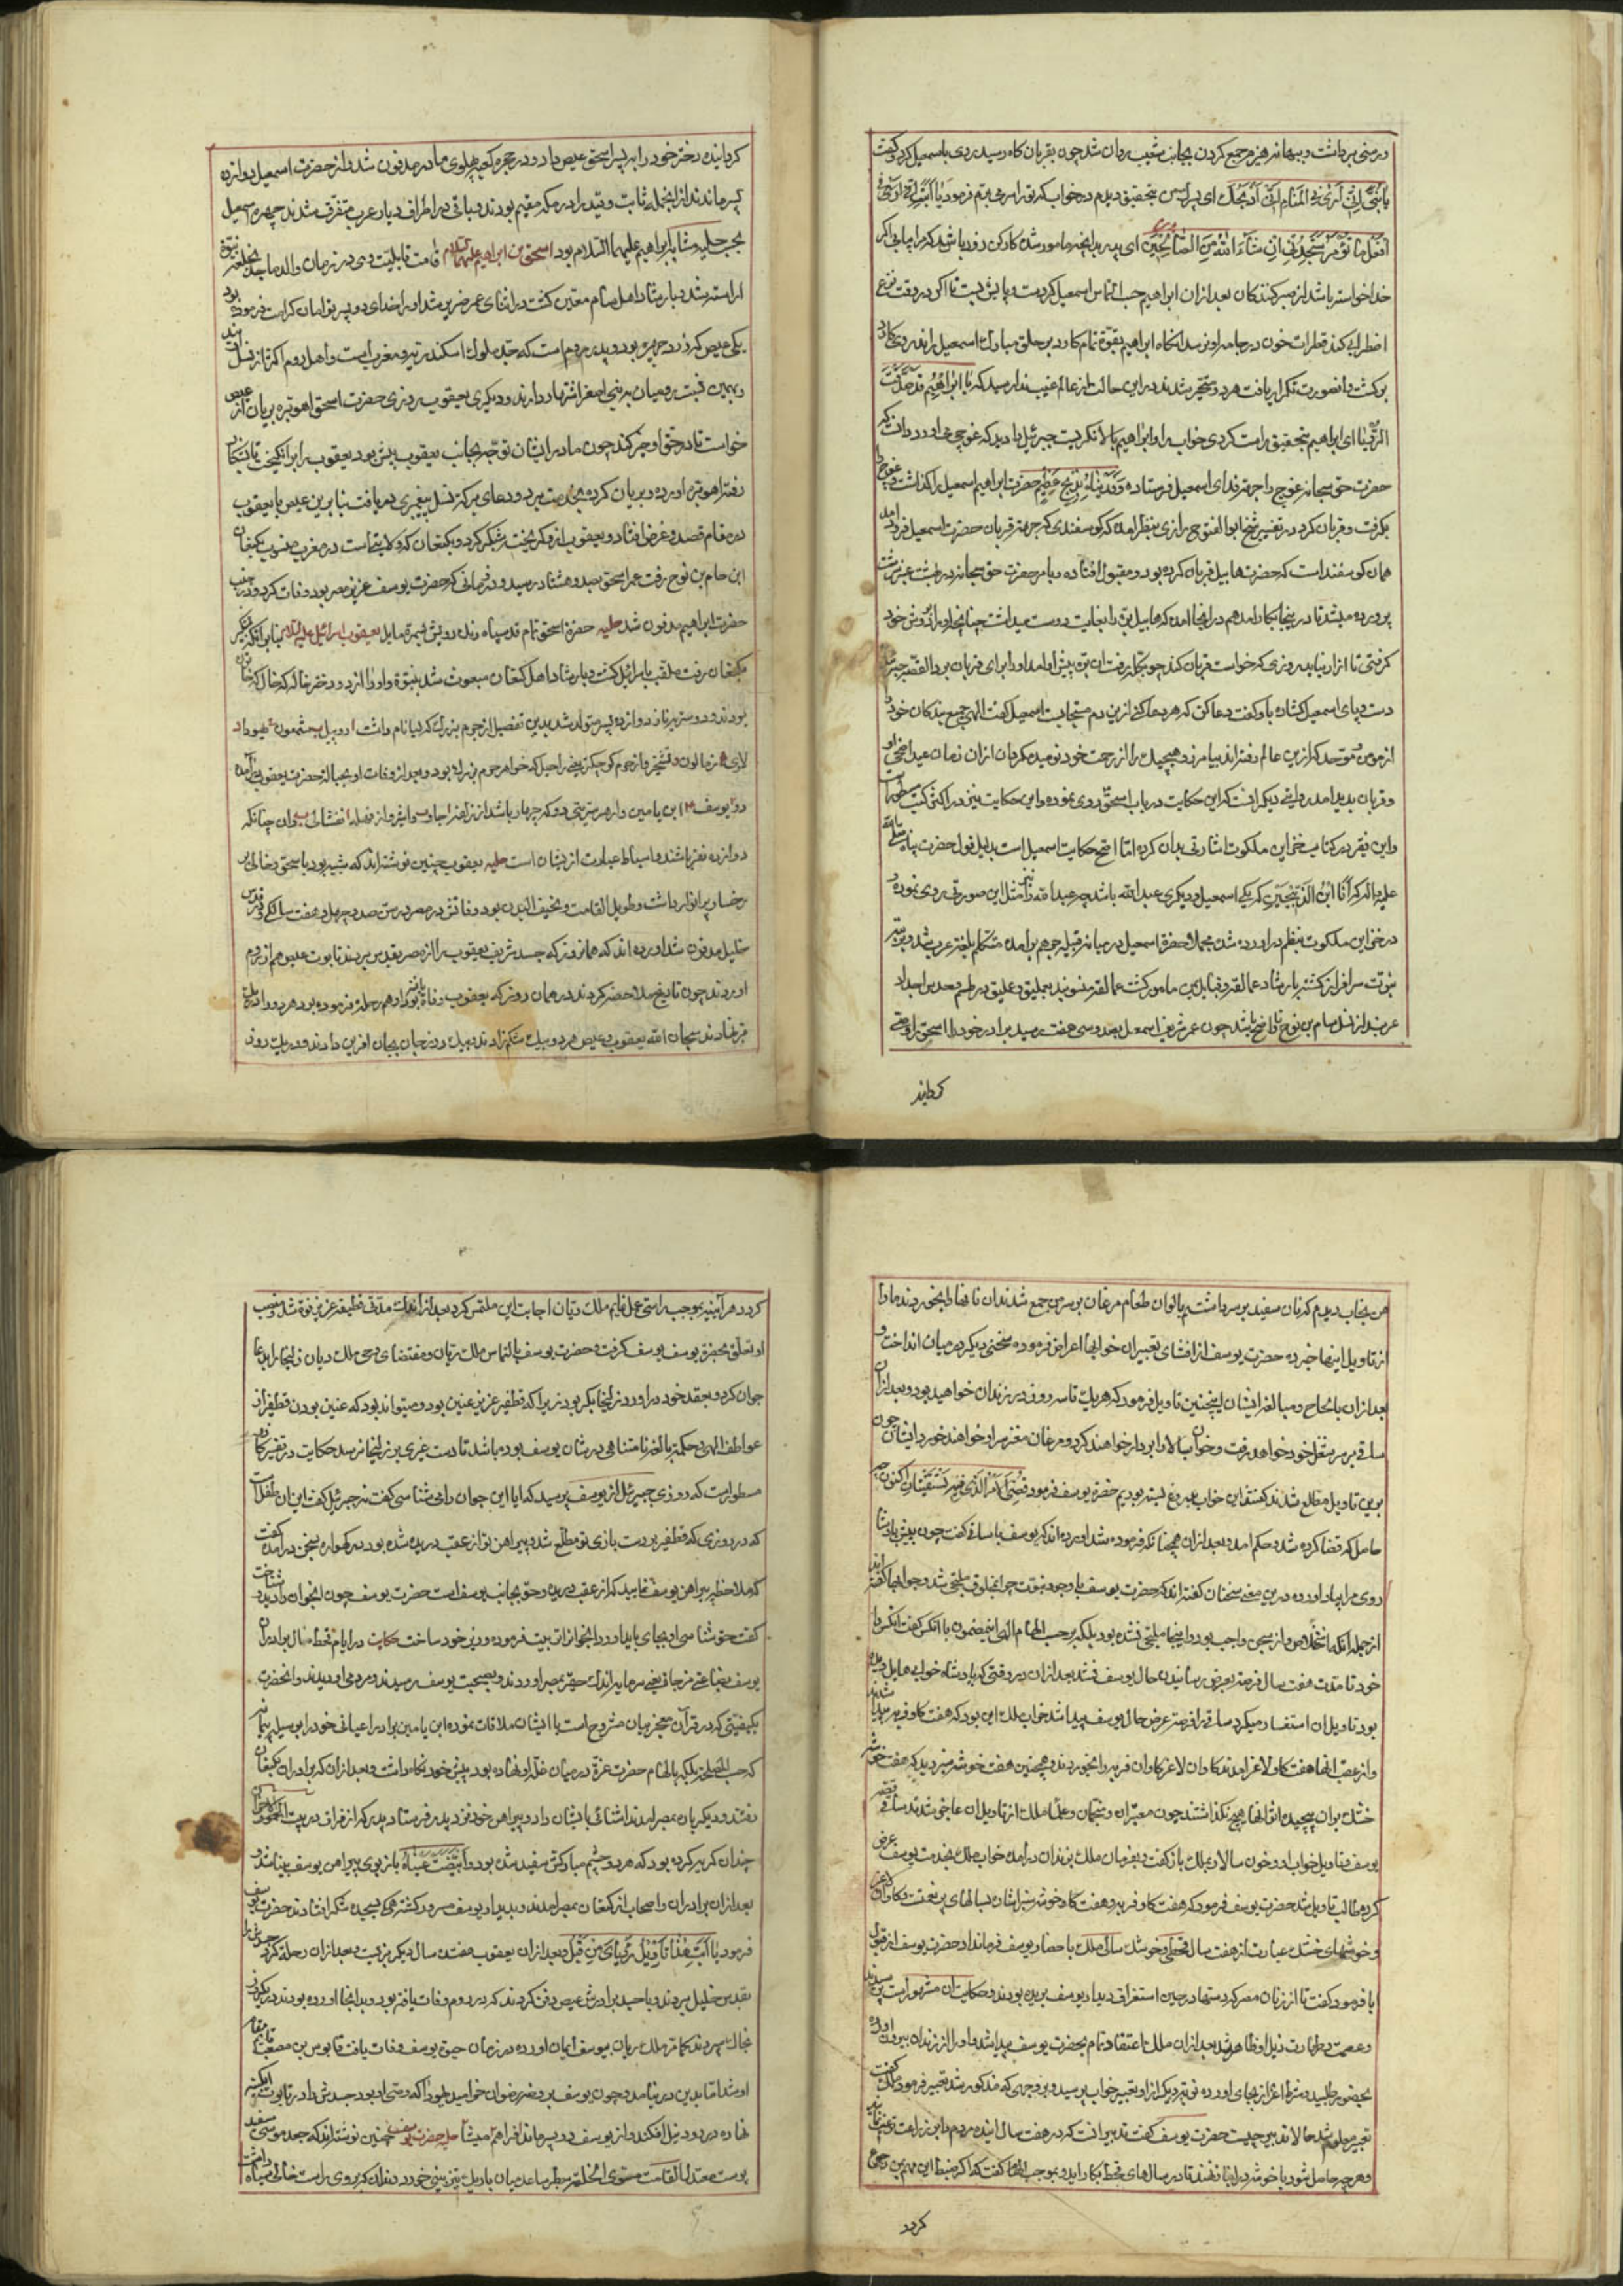 در منی برداشت و ببهانه هیزم جمع کردن بجانب شعیب روان شد چون بقربان کاه رسید روی باسمعیل کرد و کفت
یا بنی انی اری فی المنام انی اذبحک ای پسر بتحقیق دیدم در خواب که ترا می فرمود یا ابت
افعل ما تؤمر ستجدنی ان شاء الله من الصابرین ای پدر بدانچه مامور شده کار کن زود باشد که مرا یابی اکر
خدا خواسته باشد از صبر کنندکان بعد ازان ابراهیم حسب التماس اسمعیل کرد دست و پایش بست تا اکر در وقت نزع
اضطرابی کند قطرات خون در جامه او نرسد انکاه ابراهیم بقوة تمام کارد بر حلق مبارک اسمعیل راند روی کارد
برکشت و انصورت تکرار یافت هر دو متحیر شدند در این حالت از عالم غیب ندا رسید که یا ابراهیم قد صدقت
الرؤیا ای ابراهیم بتحقیق راست کردی خواب را و ابراهیم ببالا نکریست جبرئیل را دید که غوچی می اورد دانست که
حضرت حق سبحانه غوچ را جهة فدای اسمعیل فرستاده وفدیناه بذبح عظیم حضرت ابراهیم اسمعیل را کذاشت و غوچ را
بکرفت و قربان کرد در تفسیر شیخ ابوالفتوح رازی بنظر امده که کوسفندی که جهة قربان حضرت اسمعیل فرود امد
همان کوسفند است که حضرت هابیل قربان کرده بود و مقبول افتاده و بامر حضرت حق سبحانه در بهشت عنبر سرشت
پرورده میشد تا در اینجا بکار امد هم در اینجا امده که هابیل بره را بغایت دوست میداشت چنانچه او را بر دوش خود
کرفتی تا ازار نیابد روزی که خواست قربان کند چون بکله رفت ان بره پیش او امد او را برای قربان برد القصه جبرئیل
دست و پای اسمعیل کشاده باو کفت دعا کن که هر دعا که کنی ازین دم مستجابست اسمعیل کفت الهی جمیع بندکان خود را
از مومن و موحد که ازین عالم رفته اند بیامرز و هیچیک را از رحمت خود نومید مکردان ازان زمان عید اضحی و
قربان پدید امد بروایتی دیکر انست که این حکایت در باب اسحق روی نموده و این حکایت نیز در اکثر کتب مسطور است
واین فقیر در کتاب مخزن ملکوت اشارتی بدان کرده اما اصح حکایت اسمعیل است بدلیل قول حضرت پناه صلی الله
علیه واله که انا ابن الذبیحین که یکی اسمعیل و دیکری عبد الله باشد چه عبدالله را نیز مثل این صورتی روی نموده و
در مخزن ملکوت بنظم در اورده شده مجملا حضرة اسمعیل در میانه قبیله جرهم برامده متکلم بلغة عرب شد و برتبه
نبوت سرافراز کشته بارشاد عمالقه و قبایل یمن مامور کشت عمالقه منسوبند بعملیق و عملیق و طسم و جدیس اجداد
عربند از نسل سام بن نوح تا واضح باشد چون عمر شریف اسمعیل بصد و سی هفت رسید برادر خود را اسحق را وصی
کردانید
کردانیده دختر خود را به پسر اسحق عیص داد و در حجره کعبه پهلوی مادر مدفون شد و از حضرت اسمعیل دوازده
پسر ماندند از انجمله ثابت و قیدار در مکه مقیم بودند و باقی در اطراف دیار عرب متفرق شدند چهره اسمعیل
بحسب حلیه مشابه ابراهیم علیهما السلام بود اسحق بن ابراهیم علیهما السلام قامت قابلیت وی در زمان والد ماجد بخلعت نبوة
اراسته شد و بارشاد اهل شام معین کشت در اثنای عمر ضریر شد او را خدای دو پسر توامان کرامت فرموده بود
یکی عیص که زردچهره بود و پدر روم است که جد ملوک اسکندریه و مغرب است و اهل روم اکثر از نسل ویند
وبهمین نسبت رومیان به بنی اصفر اشتهار دارند و دیکری یعقوب روزی حضرت اسحق اهو بره بریان از عیص
خواست تا در حق او خیر کند چون مادر ایشان توجه بجانب یعقوب بیش بود یعقوب را برانکیخت تا بشکار
رفته اهو بره اورده و بریان کرده بخدمت برد و دعای برکة نسل پیغمبری دریافت بنابرین عیص با یعقوب
در مقام قصد و غرض افتاد و یعقوب ازو کریخت شبکیر کرد و بکنعان که ولایتی است در مغرب منسوب بکنعان
ابن حام بن نوح رفت عمر اسحق بصد و هشتاد رسید و در زمانی که حضرت یوسف عزیز مصر بود وفات کرد و در جنب
حضرت ابراهیم مدفون شد حلیه حضرة اسحق تمام قد سیاه دیده رویش بسمرة مایل یعقوب اسرائیل علیه السلام بنابر انکه شبکیر
بکنعان رفت ملقب باسرائیل کشت و بارشاد اهل کنعان مبعوث شد بنبوة و او را از دو دختر خاله که خال که خاتون
بودند و دو سریه نیز دوازده پسر متولد شد بدین تفصیل از حرم بزرک که لیا نام داشت روبیل شمعون یهودا
لاوی زبالون و یشخر و از حرم کوچکتر یعنی راحیل که خواهر حرم بزرک بود و بعد از وفات او بحباله حضرت یعقوب درامده
دو یوسف بن یامین و از هر سریتی دو که چهار باشد از زلفه جاد و اشیر و از بلهه نفتالی و دان چنانکه
دوازده نفر باشند و اسباط عبارت ازیشان است حلیه یعقوب چنین نوشته اند که شبیه بود باسحق و خالی بر
رخسار پر انوار داشت و طویل القامت و نحیف البدن بود وفاتش در مصر در سن صد و چهل و هفت سالکی و در قدس
خلیل مدفون شد اورده اند که همان روز که جسد شریف یعقوب را از مصر بقدس بردند تابوت عیص هم از روم
اوردند چون تاریخ ملاحضه کردند در همان روز که یعقوب وفات یافته بود او هم رحله فرموده بود هر دو را در یک
قبر نهادند سبحان الله یعقوب و عیص هر دو بیک شکم زادند و بیک روز جان بجان افرین دادند و در یک روز
من بخواب دیدم که نان سفید بر سر داشتم با الوان طعام مرغان بر سر من جمع شدند ان نانها را بخوردند ما را
از تاویل اینها خبر ده حضرت یوسف از افشای تعبیر ان خوابها اعراض فرموده سخنی دیکر در میان انداخت و
بعد ازان بالحاح و مبالغه ایشان اینچنین تاویل فرمود که هر یک تا سه روز در زندان خواهید بود و بعد ازان
ساقی بر سر شغل خود خواهد رفت و خوان سالار را بر دار خواهند کرد و مرغان مغز سر او خواهند خورد ایشان چون
برین تاویل مطلع شدند کفتند این خواب بدروغ بسته بودیم حضرة یوسف فرمود قضی الامر الذی فیه تستفتیان
حاصل که قضا کرده شد و حکم امد و بعد ازان همچنانکه فرموده شد اورده اند که یوسف با ساقی کفت چون پیش پادشاه
روی مرا بیاد اور و درین معنی سخنان کفته اند که حضرت یوسف با وجود نبوت چرا بمخلوقی ملتجی شد و جوابها کفته اند
از جمله انکه استخلاص از سجن واجب بود و اینجا ملتجی نشده بود بلکه بر حسب الهام الهی این مضمون با انکس کفت انکس را
خود تا مدت هفت سال فرصة بعرض رسانیدن حال یوسف نشد بعد ازان در وقتی که پادشاه خوابی هایل دیده
بود تاویل ان استفسار میکرد ساقی را فرصة عرض حال یوسف پیدا شد خواب ملک این بود که هفت کاو فربه پیدا شدند
و از عقب انها هفت کاو لاغر امدند کاوان لاغر کاوان فربه را بخوردند و همچنین هفت خوشه سبز دید که هفت خوشه
خشک بران پیچیده از انها هیچ نکذاشتند چون معبران و منجمان و علماء ملک از تاویل ان عاجز شدند ساقی قصه
یوسف و تاویل خواب او و خوان سالار بملک باز کفت و بفرمان ملک بزندان درامد خواب ملک بخدمت یوسف عرض
کرده طالب تاویل شد حضرت یوسف فرمود که هفت کاو فربه و هفت خوشه سبز اشان بسالهای پر نعمت و کاوان لاغر
و خوشهای خشک عبارت از هفت سال قحطی و خوشک سالی ملک باحضار یوسف فرمان داد حضرت یوسف از قبول
ابا فرمود کفت تا از زنان مصر که دستها در حین استغراق دیدار یوسف بریده بودند و حکایت ان مشهور است پرسیدند
و عصمت و طهارت ذیل او ظاهر شد بعد ازان ملک را اعتقاد تمام بحضرت یوسف پیدا شد و او را از زندان بیرون اورده
بحضور طلبید و شرط اعزاز بجای اورده نوبه دیکر ازو تعبیر خواب پرسید و بر وجهی که مذکور شد تعبیر فرمود ملک کفت
تعبیر معلوم شد حالا تدبیر چیست حضرت یوسف کفت تدبیر انست که در هفت سال اینده مردم را بر زراعت ترغیب نمایند
و هر چه حاصل شود با خوشه در انبار نهند تا در سالهای قحط بکار اید و بموجب الهام کفت که اکر ضبط این مهم بمن رجوع
کردد
کردد هر اینه بموجب راستی عمل نمایم ملک ریان اجابت این ملتمس کرد بعد از اندک مدتی قطیفر عزیز فوت شد و منصب
او تعلق بحضرة یوسف کرفت و حضرت یوسف بالتماس ملک ریان و مقتضای وحی ملک دیان زلیخا را بدعا
جوان کرد و بعقد خود در اورد زلیخا بکر بود زیرا که قطفیر عزیز عنین بود و میتواند بود که عنین بودن قطفیر از
عواطف الهی و حکمة بالغه نامتناهی در شان یوسف بوده باشد تا دست غیری بزلیخا نرسد حکایت در تفسیر
مسطور است که روزی جبرئیل از یوسف پرسید که ایا این جوان را می شناسی کفت نه جبرئیل کفت این ان طفل است
که در روزی که قطفیر بر دست بازی تو مطلع شد و پیراهن تو از عقب دریده شده بود در کهواره بسخن درامده کفت
که ملاحظه پیراهن یوسف نمایید که از عقب دریده و حق بجانب یوسف است حضرت یوسف چون انجوان را بدید بشناخت
کفت حق شناسی او بجای باید اورد انجوان را تربیت فرموده وزیر خود ساخت حکایت در ایام قحط سال برادران
یوسف بضاعتی مزجاة یعنی سرمایه اندک حقیر بمصر اوردند و بصحبت یوسف رسیدند و مردمی او دیدند و انحضرت
بکیفیتی که در قرآن معجز بیان مشروح است با ایشان ملاقات نموده ابن یامین برادر اعیانی خود را بوسیله پیمانه
که حسب المصلحة بلکه بالهام حضرت عزة در میان غله او نهاده بود پیش خود نکاه داشت و بعد ازان که برادران بکنعان
رفتند و دیکر بار بمصر امدند اشنائی بایشان داد و پیراهن خود نزد پدر فرستاد پدر که از فراق در بیت الاحزان خود
چندان کریه کرده بود که هر دو چشم مبارکش سفید شده بود وابیضت عیناه باز ببوی پیراهن یوسف بینا شد و
بعد ازان برادران و اصحاب از کنعان بمصر امدند و بدیدار یوسف مسرور کشته همکی بسجده شکر افتادند حضرت یوسف
فرمود یا ابت هذا تاویل رؤیای من قبل و بعد ازان یعقوب هفده سال دیکر بزیست و بعد ازان رحله کرد
بقدس خلیل بردند و با جسد برادرش عیص دفن کردند که در روم وفات یافته بود و بدانجا اورده بودند در یکروز
بخاک سپردند ملک ریان بیوسف ایمان اورده در زمان حیوة یوسف وفات یافت قابوس بن مصعب قایم مقام
او شد اما بدین در نیامد و چون یوسف بروضه رضوان خرامید یهودا که وصی او بود جسدش را در تابوت ابکینه
نهاده در رود نیل افکند و از یوسف دو پسر ماند افراهیم میشا حلیه حضرت یوسف چنین نوشته اند که جعد موی سفید
پوست معتدل القامت مستوی الخلقة سطبر ساعد میان باریک تیز بینی خورد دندان که بر روی راست خالی سیاه داشت